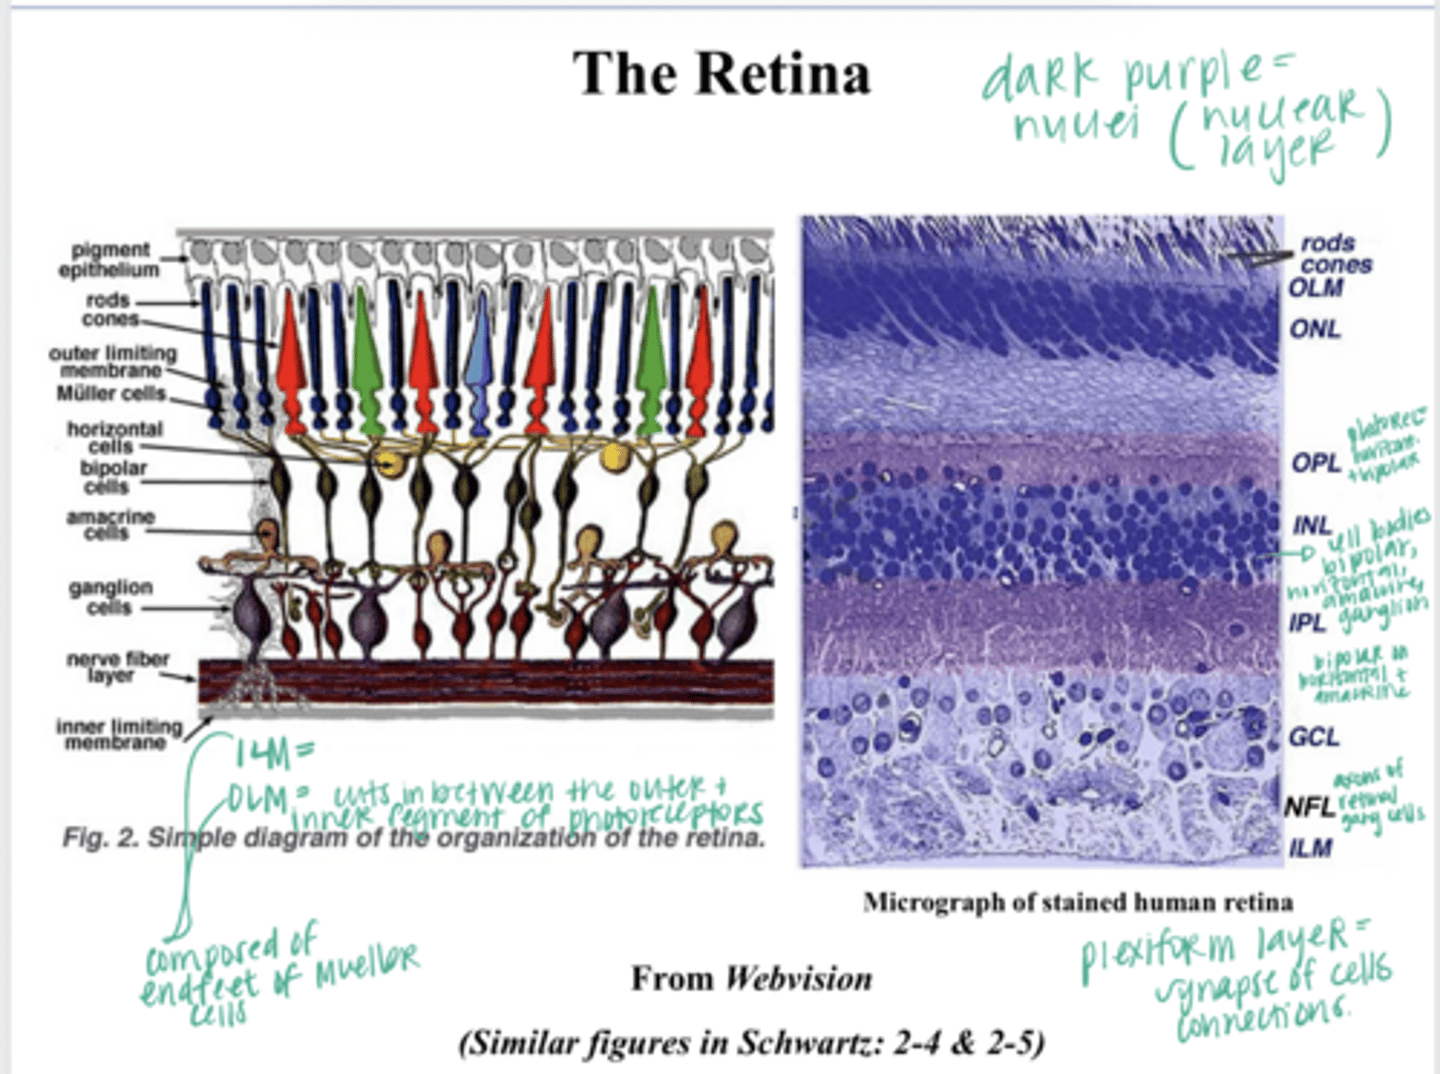 The Retina
dark purple =
nuclei (nuclear
layer)
pigment
epithelium
rods
cones
outer limiting
membrane
Müller cells
horizontal
cells
bipolar
cells
amacrine
cells
ganglion
cells
nerve fiber
layer
inner limiting
membrane
rods
cones
OLM
ONL
OPL
+ bipolar
INL
cell bodies
bipolar,
horizontal,
amacrine,
ganglion
IPL
bipolar
horizontal +
amacrine
GCL
axons of
retinal
gang cells
NFL
ILM
ILM =
OLM = cuts in between the outer +
inner segment of photoreceptors
Fig. 2. Simple diagram of the organization of the retina.
Micrograph of stained human retina
composed of
endfeet of Mueller
cells
From Webvision
plexiform layer =
synapse of cells
connections.
(Similar figures in Schwartz: 2-4 & 2-5)